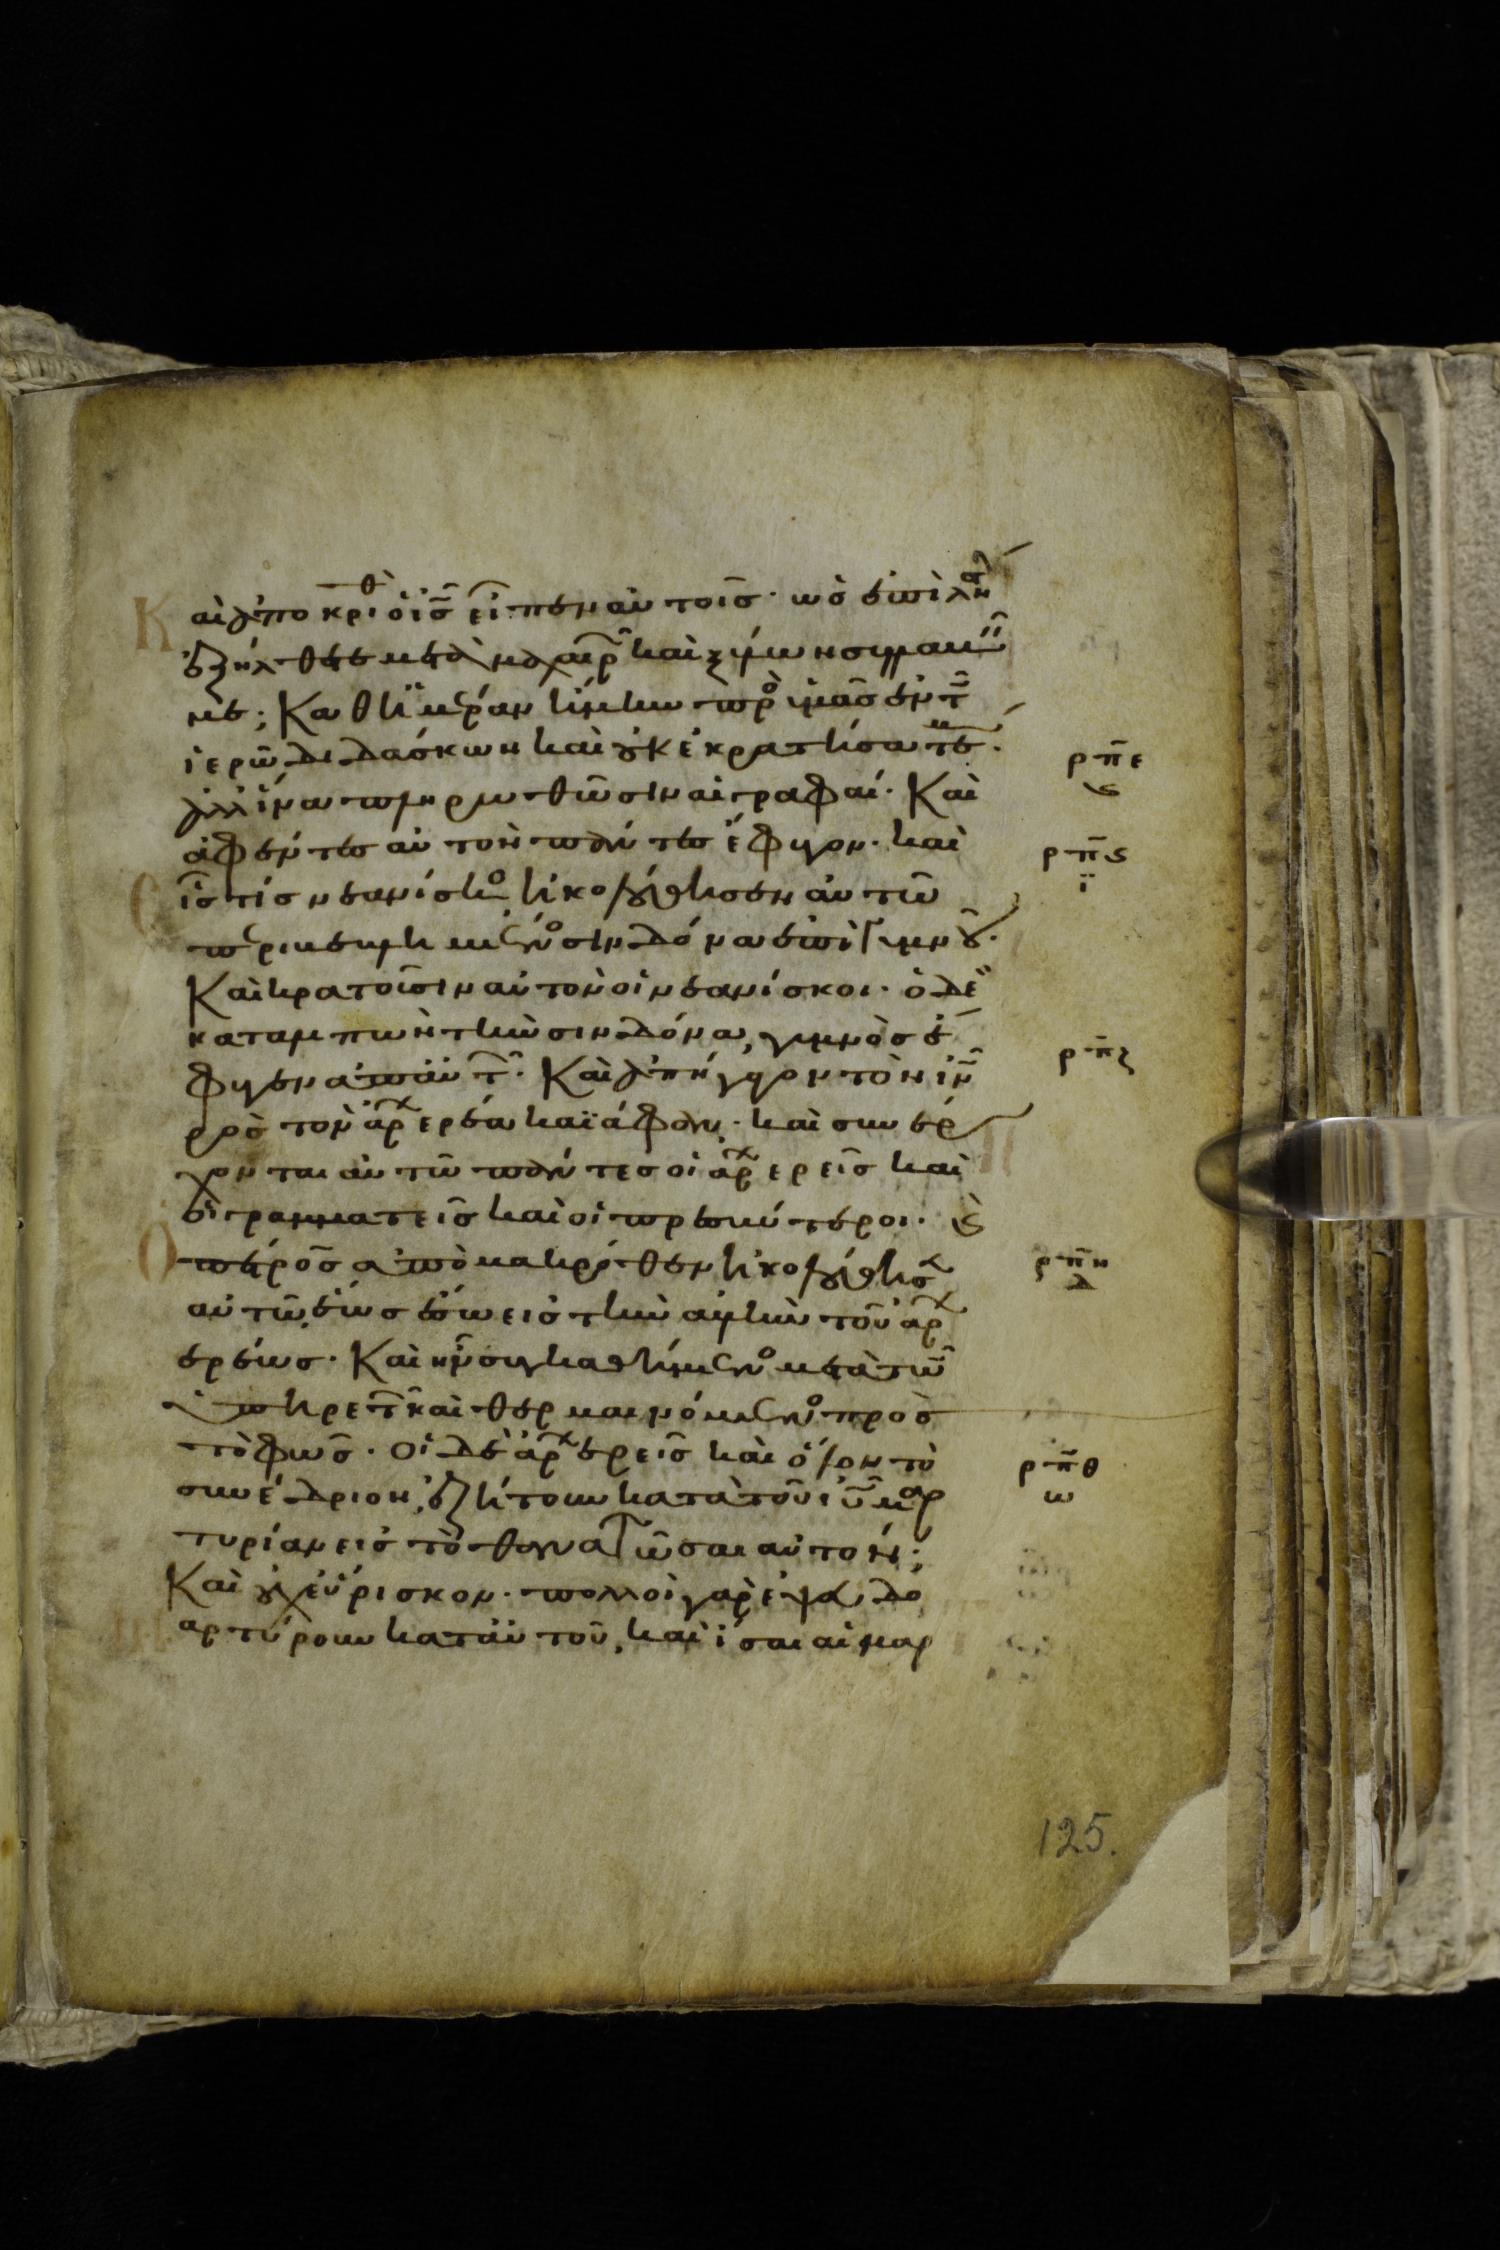 Καὶ ἀποκριθ ὁ ἰς εἶπεν αὐτοῖς· ὡς ἐπὶ λην
ἐξήλθετε μετὰ μαχαιρ καὶ ξύλων συλλαβεῖν
με; Καθ ἡμέραν ἤμην πρὸ ὑμᾶς ἐν τ
ἱερῶ διδάσκων καὶ οὐκ ἐκρατήσατέ με·
ἀλλ ἵνα πληρωθῶσιν αἱ γραφαί· Καὶ
ρπε
ς
ἀφέντες αὐτὸν πάντες ἔφυγον· καὶ
ρπς
ϊ
εἷς τίς νεανίσκο ἠκολούθησεν αὐτῶ
περιβεβλημένο σινδόνα ἐπὶ γυμνοῦ·
Καὶ κρατοῦσιν αὐτὸν οἱ νεανίσκοι· ὁ δὲ
καταλιπὼν τὴν σινδόνα, γυμνὸς ἔ
φυγεν ἀπ αὐτ· Καὶ ἀπήγαγον τὸν ἰν
ρπζ
πρὸς τὸν ἀρχερέα καϊάφαν· καὶ συνέρ
χονται αὐτῶ πάντες οἱ ἀρχερεῖς καὶ
οἱ γραμματεῖς καὶ οἱ πρεσβύτεροι· κὶ
Ὁ πέτρος ἀπὸ μακρόθεν ἠκολούθησ
ρπη
δ
αὐτῶ, ἕως ἔσω εἰς τὴν αὐλὴν τοῦ ἀρχ
ερέως· Καὶ ἦν συγκαθήμενο μετὰ τῶν
ὑπηρετ καὶ θερμαινόμενο πρὸς
τὸ φῶς· Οἱ δὲ ἀρχερεῖς καὶ ὅλον τὸ
ρπθ
συνέδριον, ἐζήτουν κατὰ τοῦ ἰυ μαρ
τυρίαν εἰς τὸ θανατῶσαι αὐτόν;
Καὶ οὐχ εὕρισκον· πολλοὶ γὰρ ἐψευδο
μαρτύρουν κατ αὐτοῦ, καὶ ἴσαι αἱ μαρ
125.